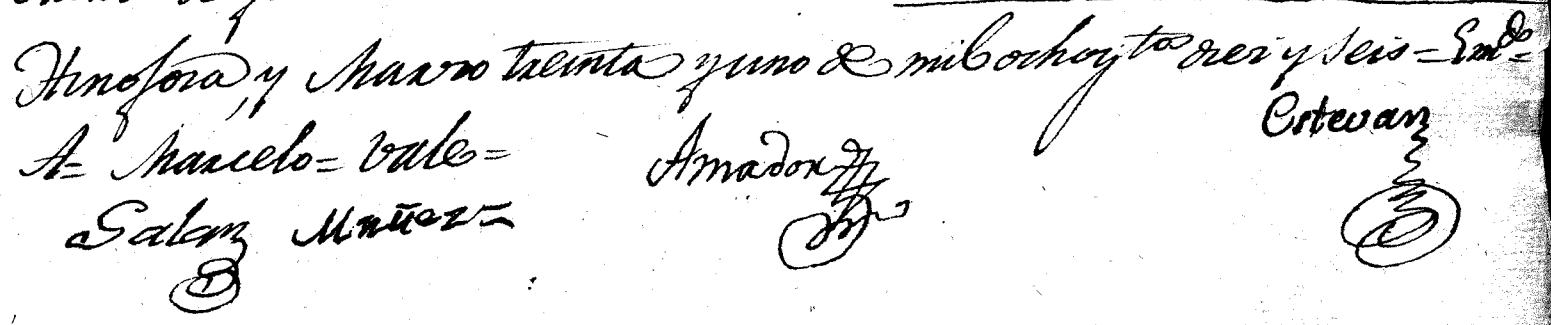 Hinojosa, y Marzo treinta y uno de mil ochoz.tos diez y seis = Em.do =
A = Marcelo = Vale =
Estevan
Amador
Salaz Muñoz =